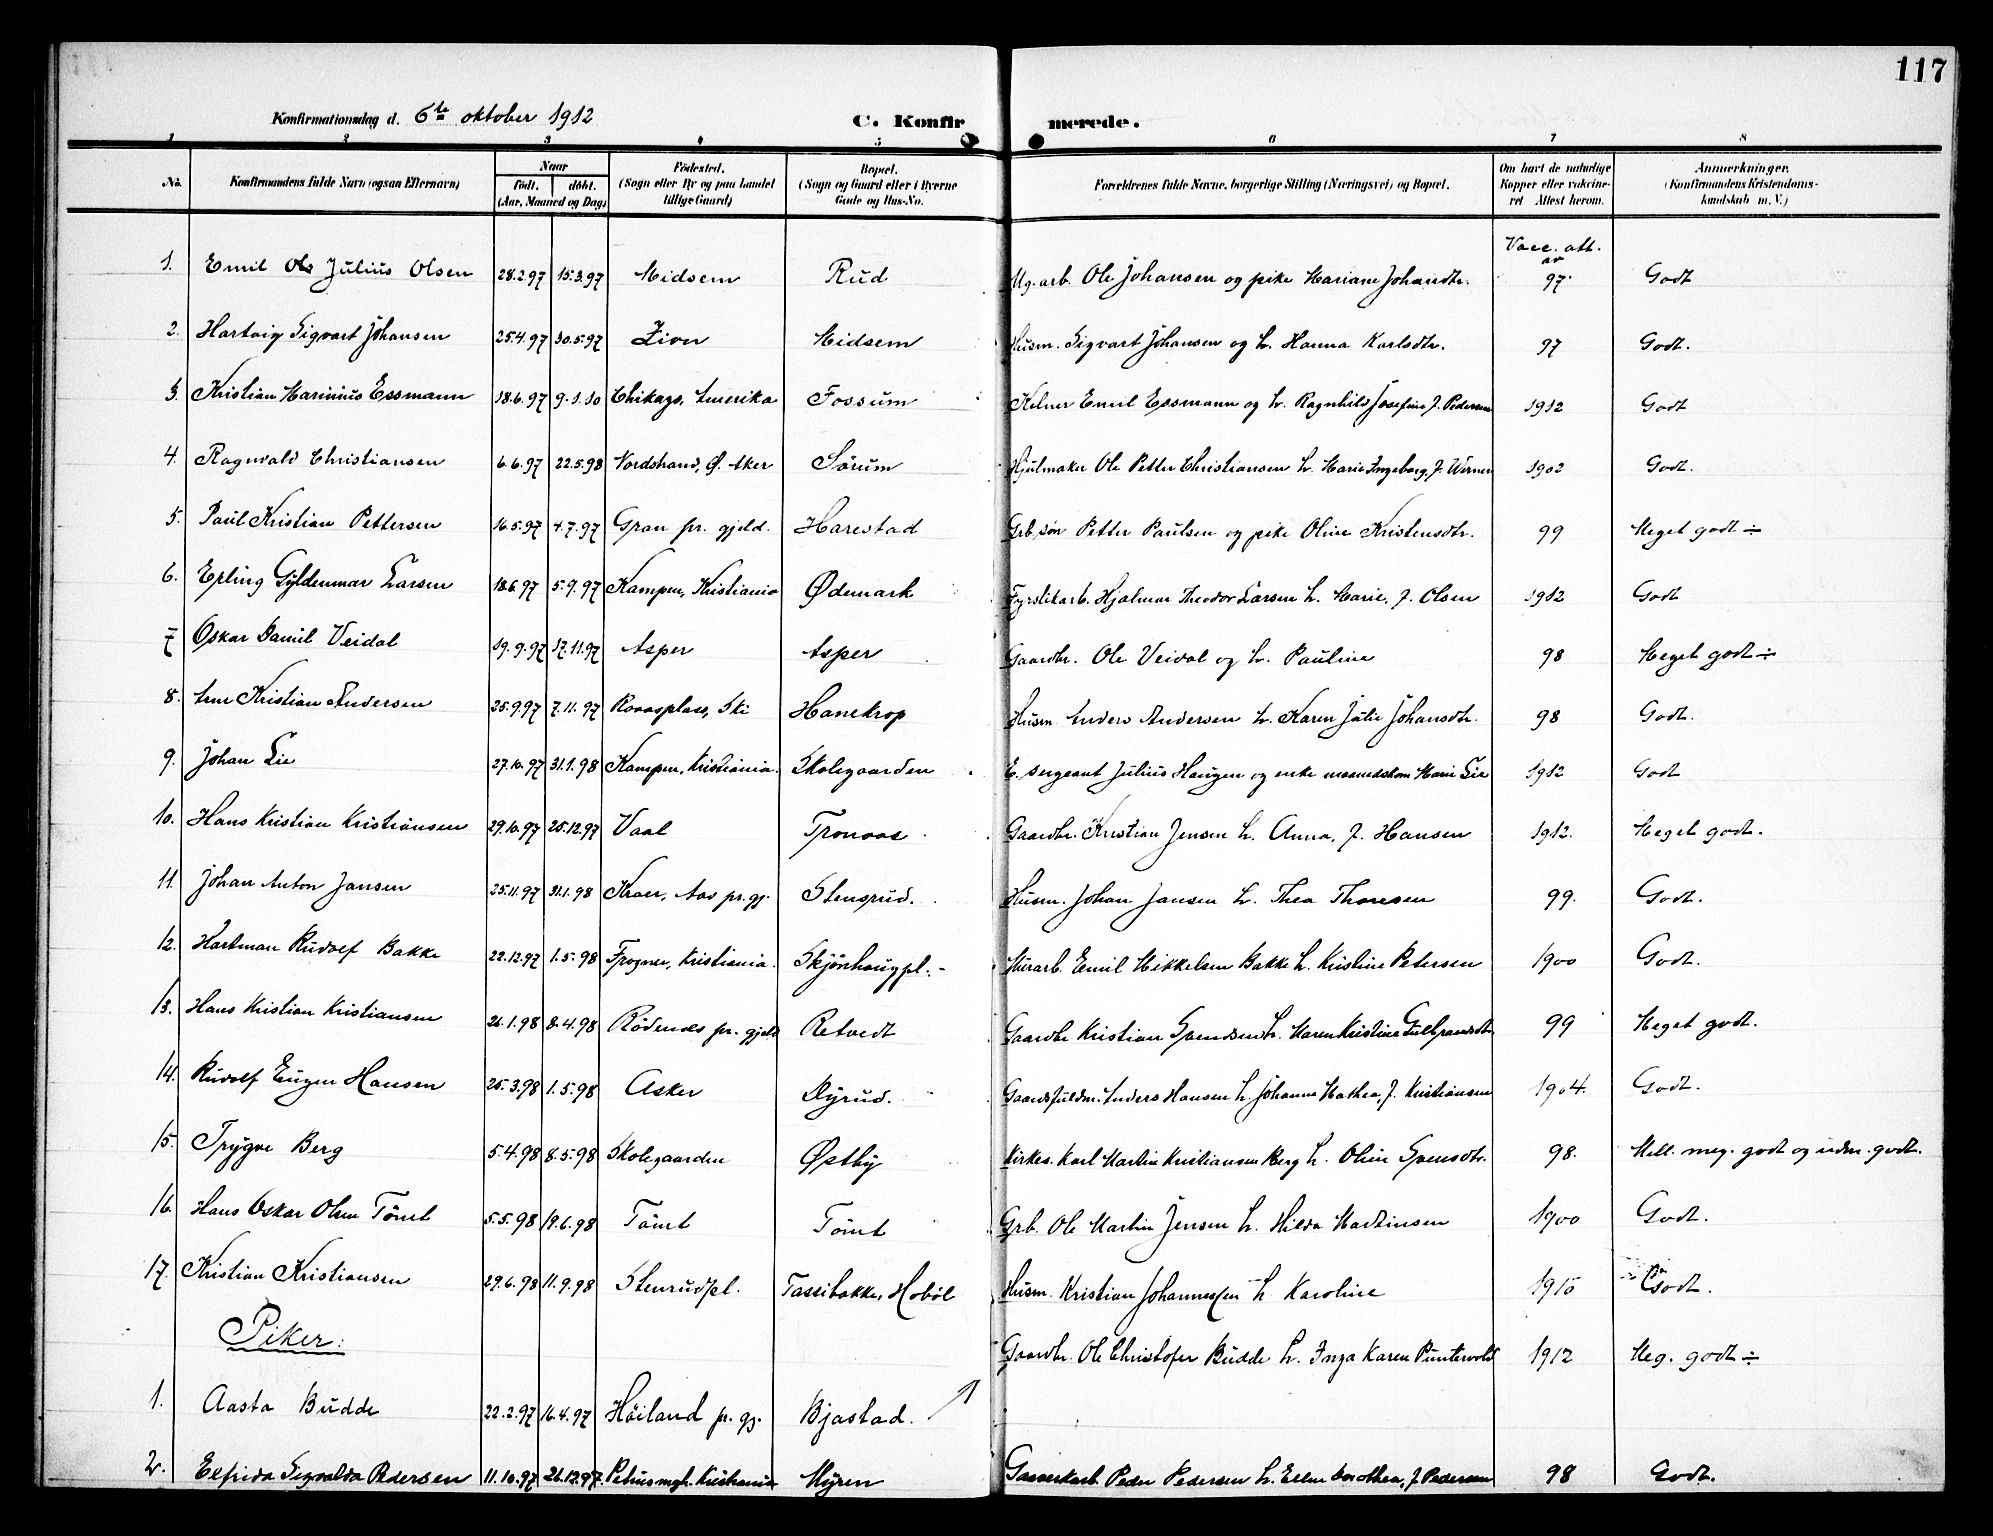 117
Konfirmationsdag d. 6te oktober 1912 C. Konfirmerede.
1 2 3 4 5 6 7 8
No. Konfirmandens fulde Navn (ogsaa Efternavn) Naar født. døbt. (Aar, Maaned og Dag) Fødested. (Sogn eller By og paa Landet tillige Gaard) Bopæl. (Sogn og Gaard eller i Byerne Gade og Hus-No. Forældrenes fulde Navne, borgerlige Stilling (Næringsvei) og Bopæl. Om havt de naturlige Kopper eller vakcineret Attest herom. Anmærkninger. (Konfirmandens Kristendomskundskab m. V.)
Vacc. att. av
1. Emil Ole Julius Olsen 28.2.97 15.3.97 Midsem Rud Ug. arb. Ole Johansen og pike Mariane Johansdtr. 97 Godt
2. Hartvig Sigvart Johansen 25.4.97 30.5.97 Lion Midsem Husm. Sigvart Johansen og h. Hanna Karlsdtr. 97 Godt.
3. Kristian Marinius Essmann 18.6.97 9.1.10 Chikago, Amerika Fossum Kelner Emil Essmann og h. Ragnhild Josefine f. Pedersen 1912 Godt
4. Ragnvald Christiansen 6.6.97 22.5.98 Nordstrand, Ø. Aker Sörum Hjulmaker Ole Petter Christiansen h. Marie Ingeborg, f. Werner 1902 Godt.
5. Paul Kristian Pettersen 16.5.97 4.7.97 Gran pr. gjeld. Harestad Grb. søn Petter Paulsen og pike Oline Kristensdtr. 99 Meget godt ÷
6. Erling Gyldenmar Larsen 18.6.97 5.9.97 Kampen, Kristiania Ødemark Fyrstikarb. Hjalmar Theodor Larsen h. Marie, f. Olsen 1912 Godt
7 Oskar Daniel Veidal 19.9.97 17.11.97 Asper Asper Gaardbr. Ole Veidal og h. Pauline 98 Meget godt ÷
8. Arne Kristian Andersen 25.9.97 7.11.97 Roaasplass, Ski Hanekrop Husm Anders Andersen h. Karen Julie Johansdtr. 98 Godt.
9. Johan Lie 27.10.97 31.1.98 Kampen, Kristiania. Skolegaarden E. sergeant Julius Haugen og enke Marie Lie 1912 Godt
10. Hans Kristian Kristiansen 29.10.97 25.12.97 Vaal Tronaas Gaardbr. Kristian Jensen h. Anna, f. Hansen 1912. Meget godt.
11. Johan Anton Jansen 25.11.97 31.1.98 Kraer, Aas pr. gj. Stensrud. Husm. Johan Jansen h. Thea Thoresen 99. Godt.
12. Hartman Rudolf Bakke 22.12.97 1.5.98 Frogner, Kristiania. Skjönhaugpl. Murarb. Emil Mikkelsen Bakke h. Kristine Petersen 1900 Godt.
13. Hans Kristian Kristiansen 26.1.98 8.4.98 Rödenes pr. gjeld Retvedt Gaardbr Kristian Svendsen h. Maren Kristine Gulbrandsdtr 99 Meget godt.
14. Rudolf Eugen Hansen 25.3.98 1.5.98 Asker Dyrud. Gaardsfuldm. Anders Hansen h. Johanne Mathea, f. Kristiansen 1904. Godt.
15. Trygve Berg 5.4.98 8.5.98 Skolegaarden Østby Kirkes. Karl Martin Kristiansen Berg h. Oline Svensdtr. 98. Mell. meg. godt og udm. godt.
16. Hans Oskar Olsen Tömt 5.5.98 19.6.98 Tömt Tömt Grb. Ole Martin Jensen h. Hilda Martinsen 1900 Godt.
17. Kristian Kristiansen 29.6.98 11.9.98 Stenrudpl. Tassebakke, Hoböl Husm. Kristian Johannessen h Karoline 1910 Godt.
Piker:
Gaardbr. Ole Christofer Budde h. Inga Karen Puntervold 1912 Meg. godt ÷
1. Aasta Budde 22.2.97 16.4.97 Höiland pr. gj. Bjastad.
2. Elfrida Sigvalda Pedersen 11.10.97 26.12.97. Petrus mgh. Kristiania Myren Gasverkarb. Peder Pedersen h. Elene Dorothea, f. Pedersen 98 Godt.